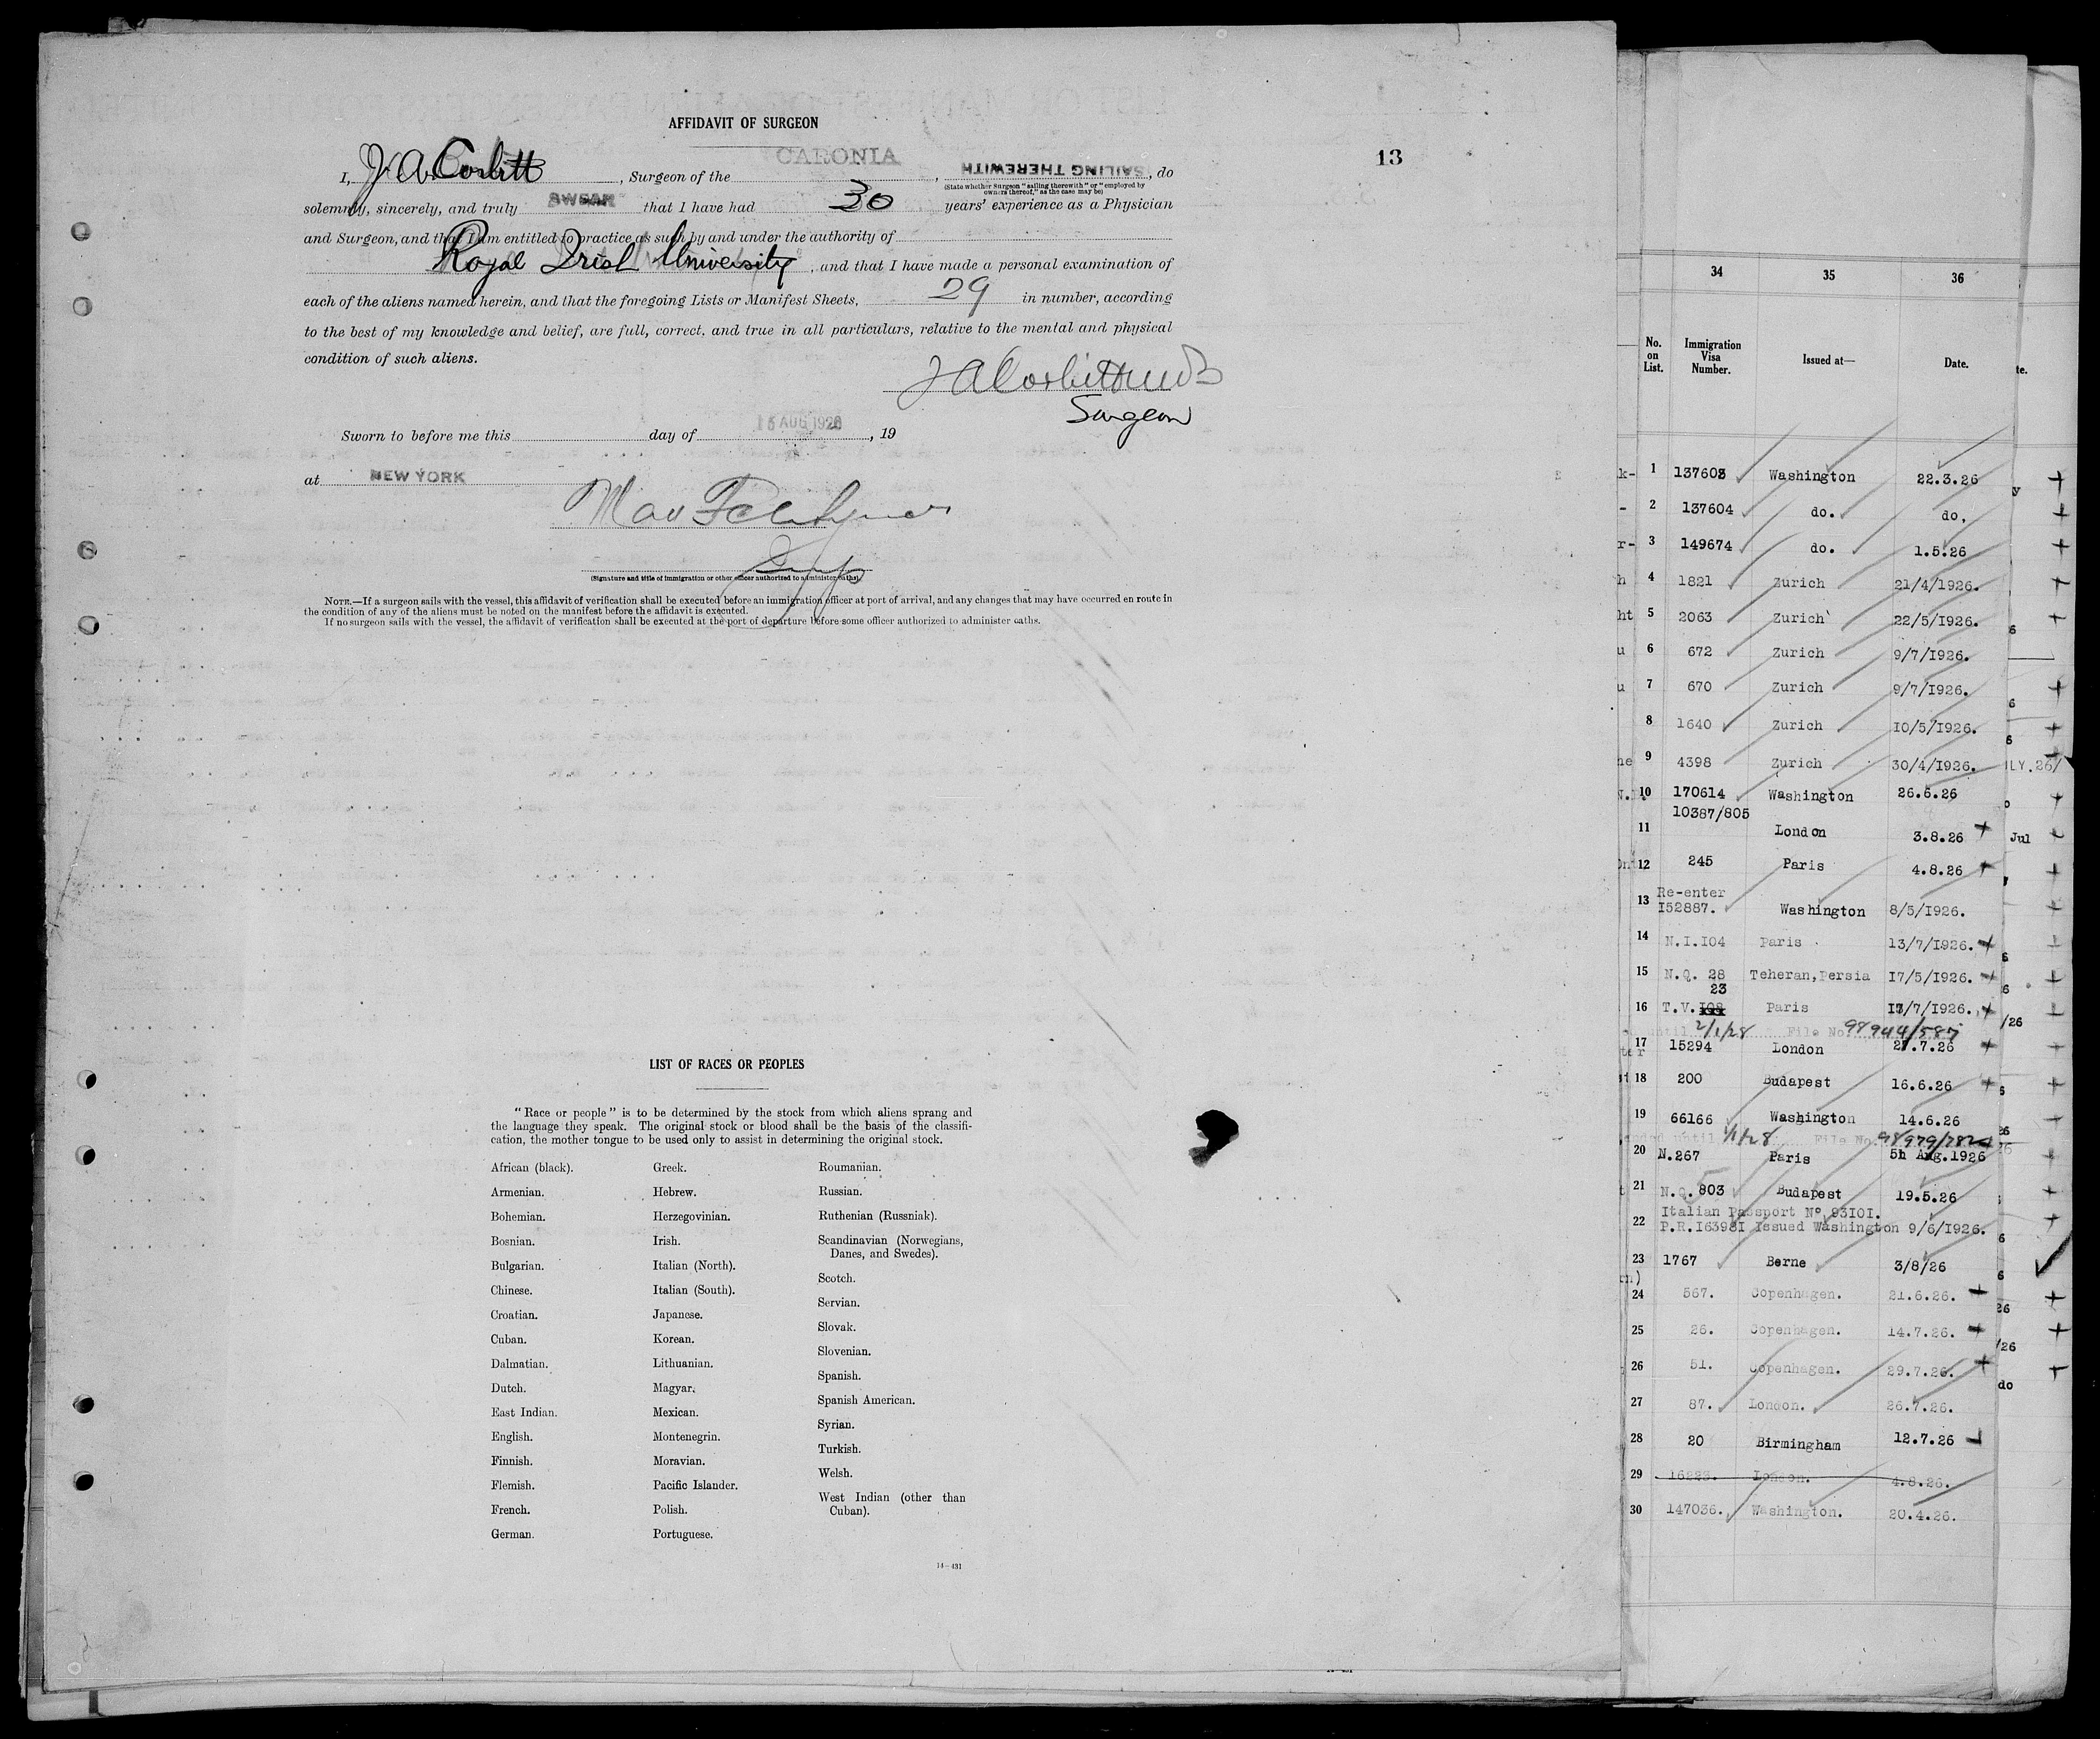 AFFIDAVIT OF SURGEON
13
I, J. A. Corbitt, Surgeon of the CARONIA, SAILING THEREWITH, do
(State whether Surgeon "sailing therewith" or "employed by
owners thereof," as the case may be)
solemnly, sincerely, and truly SWEAR that I have had 30 years' experience as a Physician
and Surgeon, and that I am entitled to practice as such by and under the authority of
Royal Irish University, and that I have made a personal examination of
each of the aliens named herein, and that the foregoing Lists or Manifest Sheets, 29 in number, according
to the best of my knowledge and belief, are full, correct, and true in all particulars, relative to the mental and physical
condition of such aliens.
J A Corbitt
Surgeon
Sworn to before me this day of AUG 1926, 19
at NEW YORK
(Signature and title of immigration or other officer authorized to administer oaths)
NOTE.—If a surgeon sails with the vessel, this affidavit of verification shall be executed before an immigration officer at port of arrival, and any changes that may have occurred en route in
the condition of any of the aliens must be noted on the manifest before the affidavit is executed.
If no surgeon sails with the vessel, the affidavit of verification shall be executed at the port of departure before some officer authorized to administer oaths.
LIST OF RACES OR PEOPLES
"Race or people" is to be determined by the stock from which aliens sprang and
the language they speak. The original stock or blood shall be the basis of the classifi-
cation, the mother tongue to be used only to assist in determining the original stock.
African (black).
Armenian.
Bohemian.
Bosnian.
Bulgarian.
Chinese.
Croatian.
Cuban.
Dalmatian.
Dutch.
East Indian.
English.
Finnish.
Flemish.
French.
German.
Greek.
Hebrew.
Herzegovinian.
Irish.
Italian (North).
Italian (South).
Japanese.
Korean.
Lithuanian.
Magyar.
Mexican.
Montenegrin.
Moravian.
Pacific Islander.
Polish.
Portuguese.
Roumanian.
Russian.
Ruthenian (Russniak).
Scandinavian (Norwegians,
Danes, and Swedes).
Scotch.
Servian.
Slovak.
Slovenian.
Spanish.
Spanish American.
Syrian.
Turkish.
Welsh.
West Indian (other than
Cuban).
14—431
34 35 36
No. on List. Immigration Visa Number. Issued at— Date.
1 137603 Washington 22.3.26
2 137604 do. do,
3 149674 do. 1.5.26
4 1821 Zurich 21/4/1926.
5 2063 Zurich 22/5/1926.
6 672 Zurich 9/7/1926.
7 670 Zurich 9/7/1926.
8 1640 Zurich 10/5/1926.
9 4398 Zurich 30/4/1926.
10 170614 Washington 26.6.26
10387/805
11 London 3.8.26
12 245 Paris 4.8.26
Re-enter
13 152887. Washington 8/5/1926.
14 N.I.104 Paris 13/7/1926.
15 N.Q. 28 Teheran, Persia 17/5/1926.
23
16 T.V. Paris 17/7/1926.
until 2/1/28 File No. 98944/587
17 15294 London 27.7.26
18 200 Budapest 16.6.26
19 66166 Washington 14.6.26
until 1/1/28 File No.
20 N.267 Paris 5h Aug.1926
21 N.Q. 803 Budapest 19.5.26
Italian Passport Nº 93101.
22 P.R.163981 Issued Washington 9/6/1926.
23 1767 Berne 3/8/26
24 567. Copenhagen. 21.6.26.
25 26. Copenhagen. 14.7.26.
26 51. Copenhagen. 29.7.26.
27 87. London. 26.7.26.
28 20 Birmingham 12.7.26
29 London. 4.8.26.
30 147036. Washington. 20.4.26.